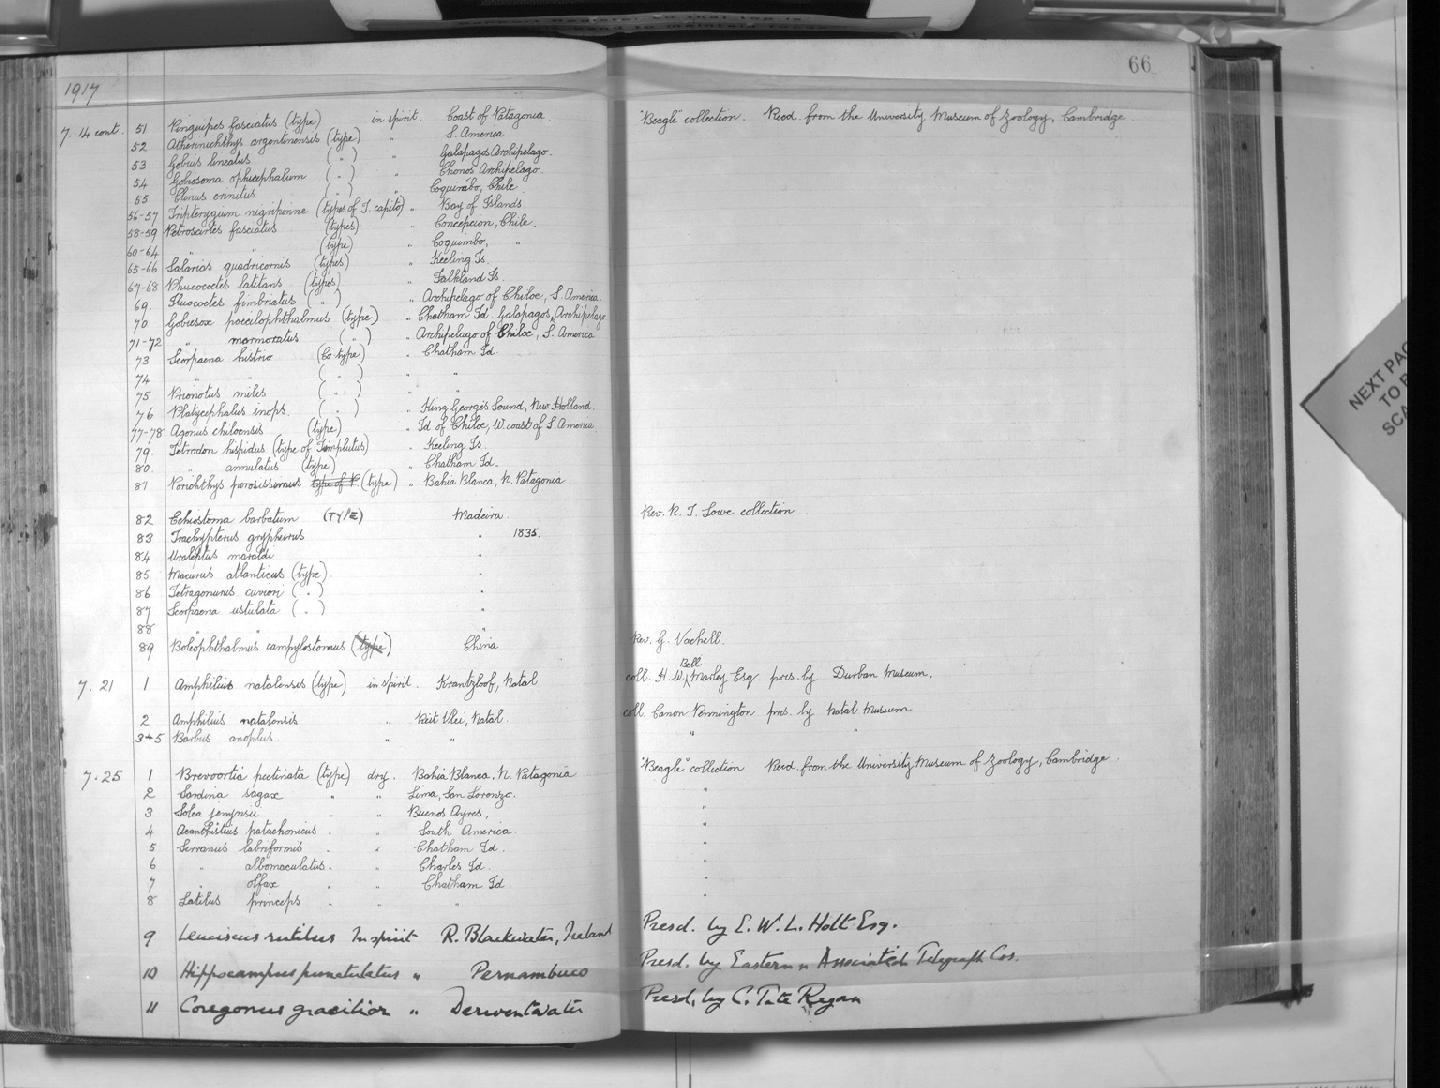 66
1917
7. 14 cont. 51 Pinguipes fasciatus (type) in spirit. Coast of Patagonia. "Beagle" collection. Recd. from the University Museum of Zoology, Cambridge.
52 Atherinichthys argentinensis (type) " S. America
53 Gobius lineatus ( " ) " Galapagos Archipelago.
54 Gobiosoma ophicephalum ( " ) " Chonos Archipelago.
55 Clinus crinitus ( " ) " Coquimbo, Chile
56-57 Tripterygium nigripinne (types of T. capito) " Bay of Islands
58-59 Petroscirtes fasciatus (types) " Concepcion, Chile.
60-64 " " (type) " Coquimbo, "
65-66 Salarias quadricornis (types) " Keeling Is.
67-68 Phucocoetes latitans (types) " Falkland Is.
69 Iluocoetes fimbriatus ( " ) " Archipelago of Chiloe, S. America.
70 Gobiesox poecilophthalmus (type) " Chatham Id. Galapagos Archipelago
71-72 " marmoratus ( " ) " Archipelago of Chiloe, S. America
73 Scorpaena histrio (Co-type) " Chatham Id.
74 " " ( " ) " "
75 Prionotus miles ( " ) " "
76 Platycephalus inops. ( " ) " King George's Sound, New Holland.
77-78 Agonus chiloensis (type) " Id of Chiloe, W. coast of S. America.
79 Tetrodon hispidus (type of T. implutus) " Keeling Is.
80. " annulatus (type) " Chatham Id.
81 Porichthys porosissimus type of P (type) " Bahia Blanca, N. Patagonia
82 Echiostoma barbatum (TYPE) Madeira. Rev. R. T. Lowe collection
83 Trachypterus gryphurus " 1835.
84 Uraleptus maraldi "
85 Macrurus atlanticus (type) "
86 Tetragonurus cuvieri ( " ) "
87 Scorpaena ustulata ( " ) "
88 " " "
89 Boleophthalmus campylostomus (type) China Rev. G. Vachell.
7. 21 1 Amphilius natalensis (type) in spirit. Krantzloof, Natal coll. H. W. Bell Marley Esq pres. by Durban Museum.
2 Amphilius natalensis " Riet Vlei, Natal. coll. Canon Pennington pres. by Natal Museum
3-5 Barbus anoplus " " " "
7. 25 1 Brevoortia pectinata (type) dry. Bahia Blanca, N. Patagonia "Beagle" collection Recd. from the University Museum of Zoology, Cambridge.
2 Sardina sagax " " Lima, San Lorenzo. "
3 Solea jenynsii " " Buenos Ayres, "
4 Acanthistius patachonicus " " South America. "
5 Serranus labriformis " " Chatham Id. "
6 " albomaculatus " " Charles Id. "
7 " olfax " " Chatham Id "
8 Latilus princeps " " " "
9 Leuciscus rutilus In spirit R. Blackwater, Ireland Presd. by E. W. L. Holt Esq.
10 Hippocampus punctulatus " Pernambuco Presd. by Eastern & Associated Telegraph Cos.
11 Coregonus gracilior " Derwentwater Presd. by C. Tate Regan
NEXT PAG
TO B
SCA